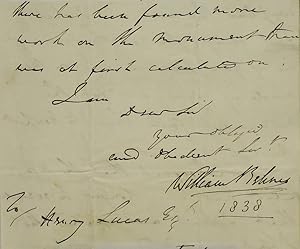 there has been found more
work on the monument than
was at first calculated on.
I am
Dear Sir
Your oblig'd
and Obedient Ser.t
William Behnes
1838
To
Henry Lucas Esq